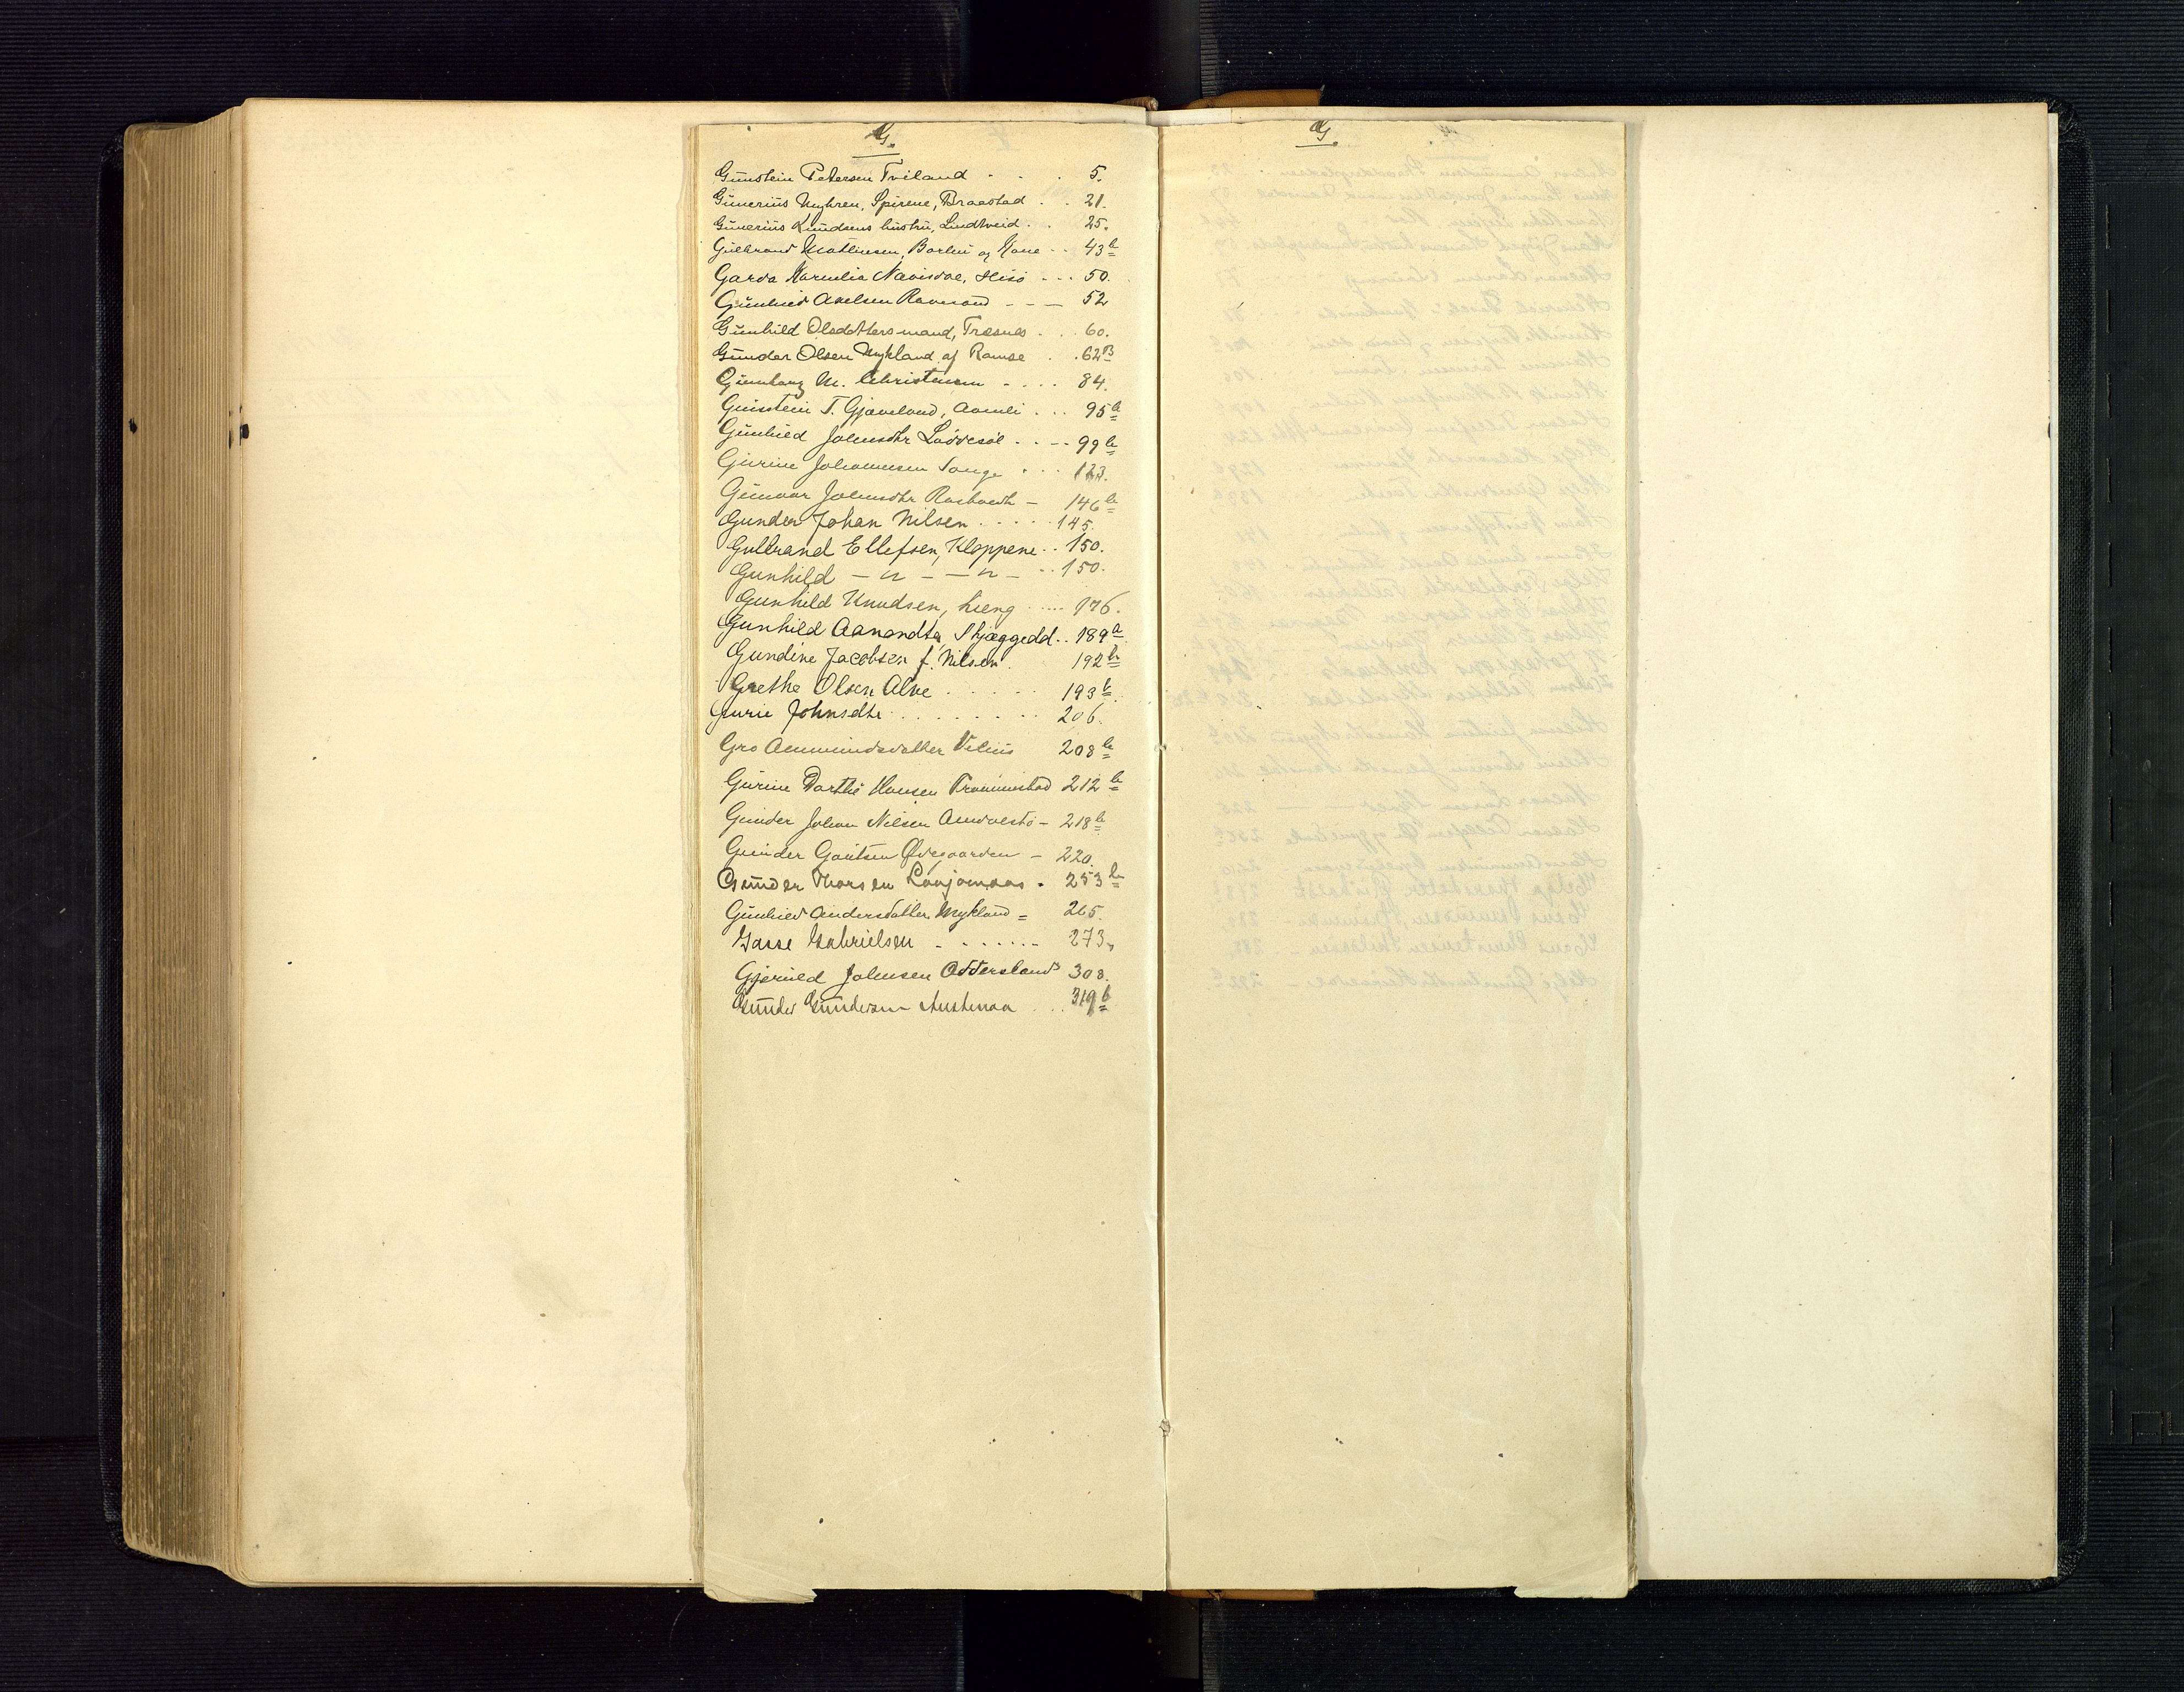 G.
Gunstein Petersen Triland . . . 5.
Gunerius Myhren, Spirene, Braastad . . 21.
Gunerius Knudsens hustru, Lindtveid . . 25.
Gulbrand Mathiesen, Borlin og Kone . . 43b
Garda Kornelia Navisdae, Hisø . . . 50.
Gunhild Axelsen Ravnsand - - - 52
Gunhild Olsdatters mand, Træsnes . . . 60.
Gunder Olsen Mykland af Ramse . . . 62B
Gunborg M. Christensen . . . . 84.
Gunstein T. Gjøveland, Aamli . . . 95b
Gunhild Johnsdtr Løddesøl . . - - 99b
Gurine Johannesen Songe . . . 123.
Gunvor Johnsdtr - 146b
Gunder Johan Nilsen . . . . . 145.
Gulbrand Ellefsen, Kloppene . . 150.
Gunhild — " — — " — . . 150.
Gunhild Knudsen, Lieng . . . . . 176.
Gunhild Aanondsd. Skjæggedal . . 189b
Gundine Jacobsen f. Nilsen . 192b
Grethe Olsen Alve . . . . . 193b
Gurie Johnsdtr . . . . . . . . 206.
Gro Aamundsdatter Veluis 208b
Gurine Dorthe Hansen Trommestad 212b
Gunder Johan Nilsen Amdvestø - 218b
Gunder Gautsen Ødegaarden - 220.
Gunder Thorsen Longemaas . 253b
Gunhild Andersdatter Mykland = 265.
Gasse Gabrielsen - . . . . . . - 273.
Gjeruld Johnsen Oddersland 308.
Gunder Gundersen Austenaa . . . 319b
G.